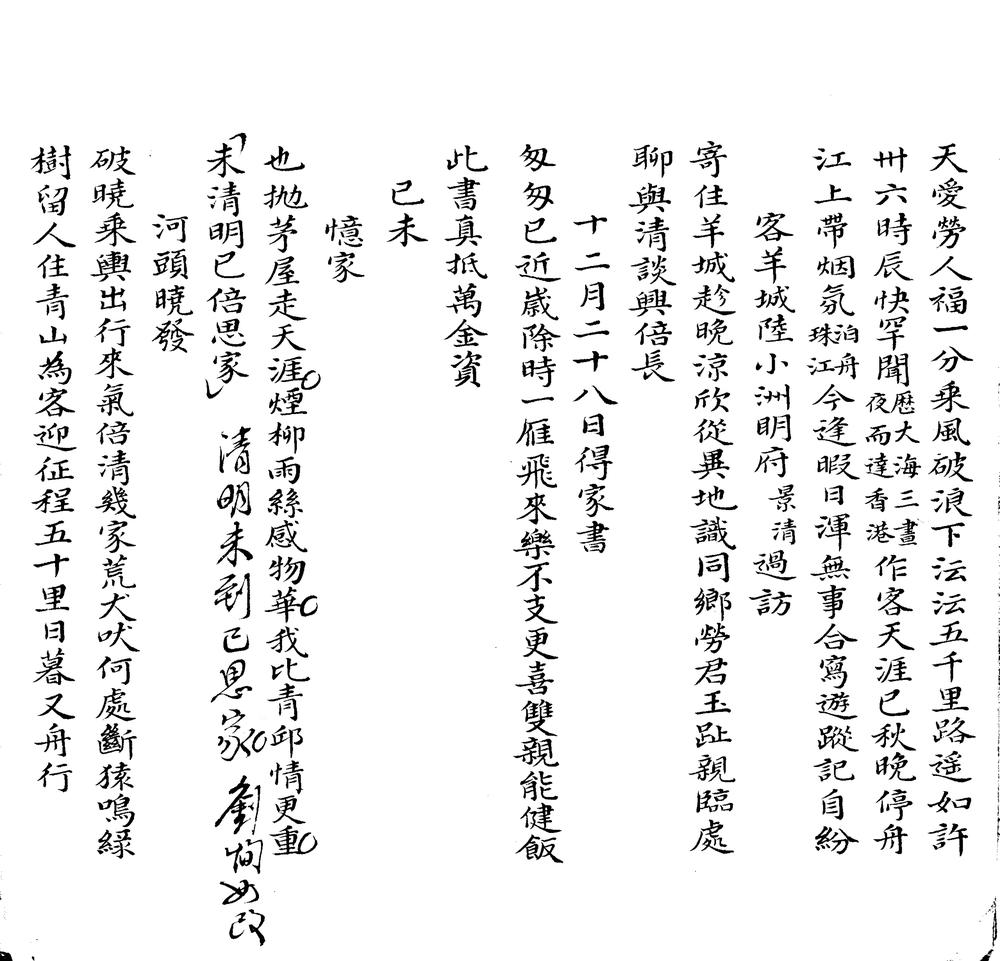 天愛勞人福一分乘風破浪下沄沄五千里路遥如許
卅六時辰快罕聞歷大海三晝夜而達香港作客天涯已秋晚停舟
江上帶烟氛泊舟珠江今逢暇日渾無事合寫遊蹤記自紛
客羊城陸小洲明府景清過訪
寄住羊城趁晚涼欣從異地識同鄉勞君玉趾親臨處
聊與清談興倍長
十二月二十八日得家書
匆匆已近歲除時一雁飛來樂不支更喜雙親能健飯
此書真抵萬金資
已未
憶家
也拋茅屋走天涯煙柳雨絲感物華我比青邱情更重
未清明已倍思家 清明未到已思家 劉恂如改
河頭曉發
破曉乘輿出行來氣倍清幾家荒犬吠何處斷猿鳴綠
樹留人住青山為客迎征程五十里日暮又舟行